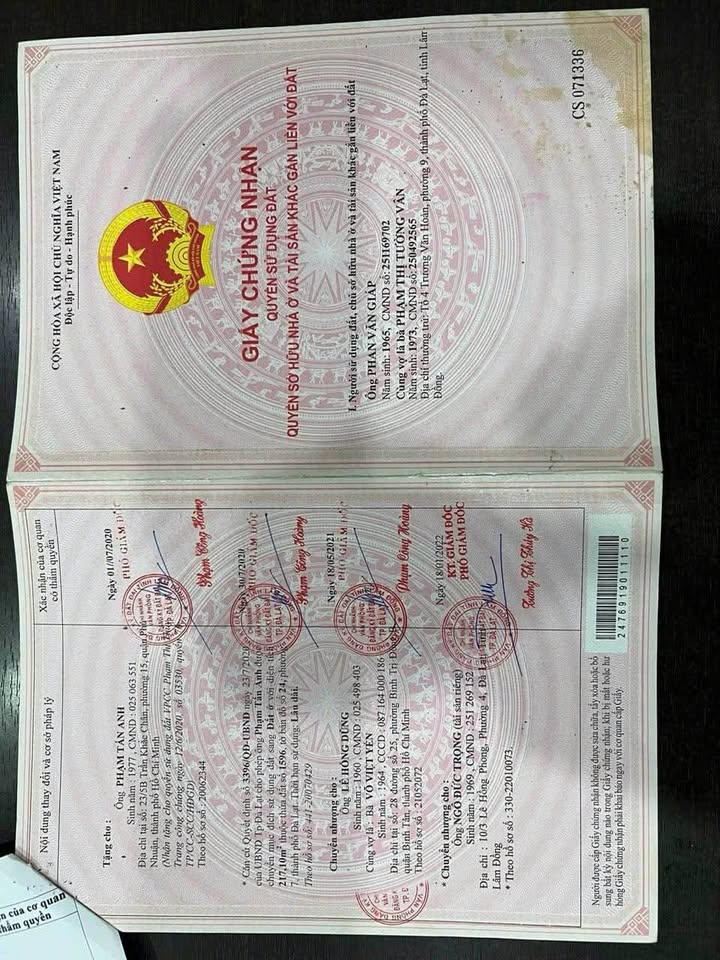 CỘNG HÒA XÃ HỘI CHỦ NGHĨA VIỆT NAM
Độc lập - Tự do - Hạnh phúc
GIẤY CHỨNG NHẬN
QUYỀN SỬ DỤNG ĐẤT
QUYỀN SỞ HỮU NHÀ Ở VÀ TÀI SẢN KHÁC GẮN LIỀN VỚI ĐẤT
I. Người sử dụng đất, chủ sở hữu nhà ở và tài sản khác gắn liền với đất
Ông PHAN VĂN GIÁP
Năm sinh: 1965, CMND số: 251169702
Cùng vợ là bà PHẠM THỊ TƯỜNG VÂN
Năm sinh: 1973, CMND số: 250492565
Địa chỉ thường trú: Tổ 4 Trương Văn Hoàn, phường 9, thành phố Đà Lạt, tỉnh Lâm
Đồng.
CS 071336
Nội dung thay đổi và cơ sở pháp lý
Xác nhận của cơ quan
có thẩm quyền
Tặng cho :
Ông PHẠM TẤN ANH
Sinh năm : 1977, CMND : 025 063 551
Địa chỉ tại số: 23/5B Trần Khắc Chân, phường 15, quận Phú
Nhuận, thành phố Hồ Chí Minh
(Nhận tặng cho quyền sử dụng đất VPCC. Phạm Thị
Trang công chứng ngày 12/6/2020, số 03530, quyển
TP/CC-SCC/HĐGD)
Theo hồ sơ số : 20062344
Ngày 01/07/2020
PHÓ GIÁM ĐỐC
Phạm Công Hoàng
* Căn cứ Quyết định số 3396/QĐ-UBND ngày 23/7/2020
của UBND Tp Đà Lạt cho phép ông Phạm Tấn Anh được
chuyển mục đích sử dụng đất sang Đất ở với diện tích
217,10m² thuộc thửa đất số 1596, tờ bản đồ số 24, phường
7, thành phố Đà Lạt. Thời hạn sử dụng: Lâu dài.
Theo hồ sơ số: 441-20070429
PHÓ GIÁM ĐỐC
Phạm Công Hoàng
Chuyển nhượng cho :
Ông LÊ HỒNG DŨNG
Sinh năm : 1960, CMND : 025 498 403
Cùng vợ là : Bà VÕ VIỆT YÊN
Sinh năm : 1964, CCCD : 087 164 000 186
Địa chỉ tại số: 28 đường số 25, phường Bình Trị Đông
quận Bình Tân, thành phố Hồ Chí Minh
Theo hồ sơ số : 21052072
Ngày 18/05/2021
PHÓ GIÁM ĐỐC
Phạm Công Hoàng
* Chuyển nhượng cho :
Ông NGÔ ĐỨC TRỌNG (tài sản riêng)
Sinh năm : 1969, CMND : 251 269 152
Địa chỉ : 10/3 Lê Hồng Phong, Phường 4, Đà Lạt, Tỉnh
Lâm Đồng
* Theo hồ sơ số : 330-22010073
Ngày 18/01/2022
KT. GIÁM ĐỐC
PHÓ GIÁM ĐỐC
Người được cấp Giấy chứng nhận không được sửa chữa, tẩy xóa hoặc bổ
sung bất kỳ nội dung nào trong Giấy chứng nhận; khi bị mất hoặc hư
hỏng Giấy chứng nhận phải khai báo ngay với cơ quan cấp Giấy.
2476919011110
n của cơ quan
thẩm quyền